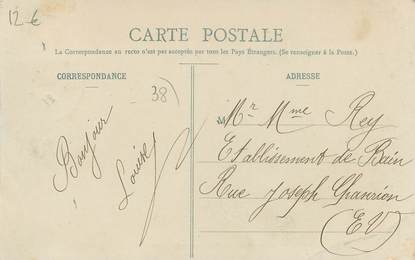 12 €
CARTE POSTALE
La Correspondance au recto n'est pas acceptée par tous les Pays Étrangers. (Se renseigner à la Poste.)
CORRESPONDANCE
ADRESSE
38)
Bonjour
Louise
M
Mr Mme Rey
Etablissement de Bain
Rue Joseph Chanrion
(EV)